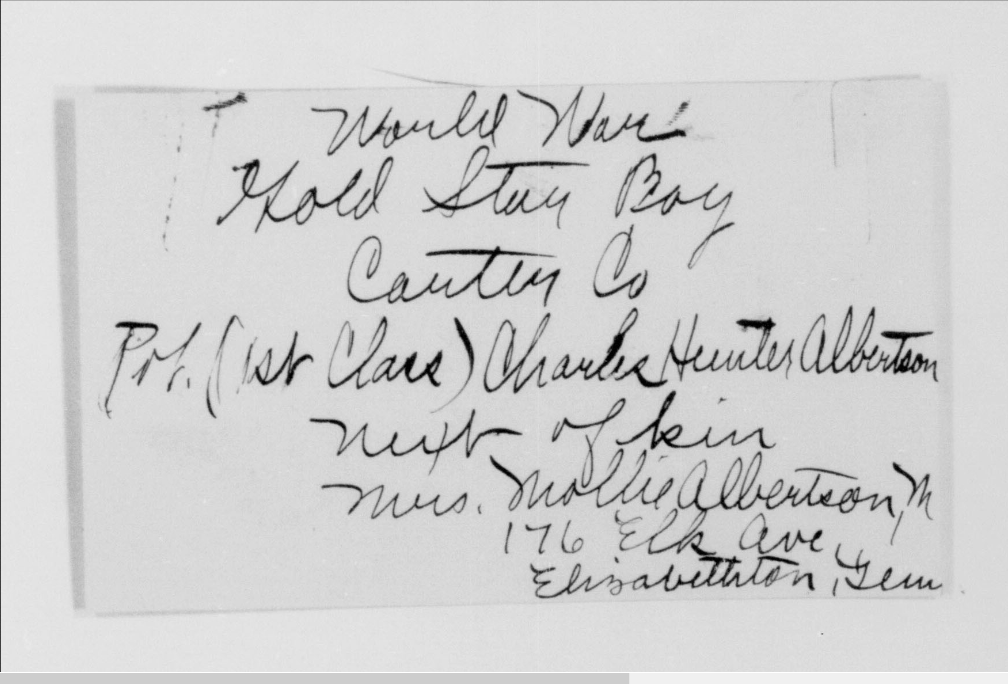 World War
Gold Star Boy
Carter Co
Pvt. (1st Class) Charles Hunter Albertson
Next of kin
Mrs. Mollie Albertson, M
176 Elk Ave.,
Elizabethton, Tenn